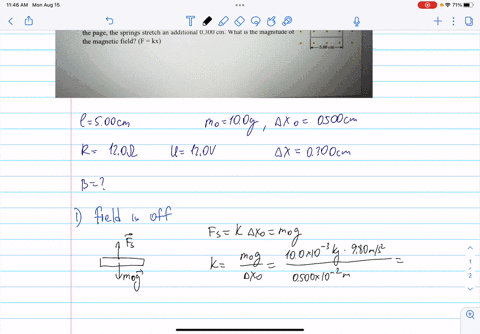 11:46 AM Mon Aug 15
71%
the page, the springs stretch an additional 0.300 cm. What is the magnitude of
the magnetic field? (F = kx)
5.00 cm
ℓ = 5.00cm m₀ = 10.0g, Δx₀ = 0.500cm
R = 12.0Ω U = 12.0V Δx = 0.300cm
B = ?
1) field is off
Fs = k Δx₀ = m₀g
Fs
m₀g
k = m₀g / Δx₀ = 10.0×10⁻³ kg · 9.80 m/s² / 0.500×10⁻² m =
1
2